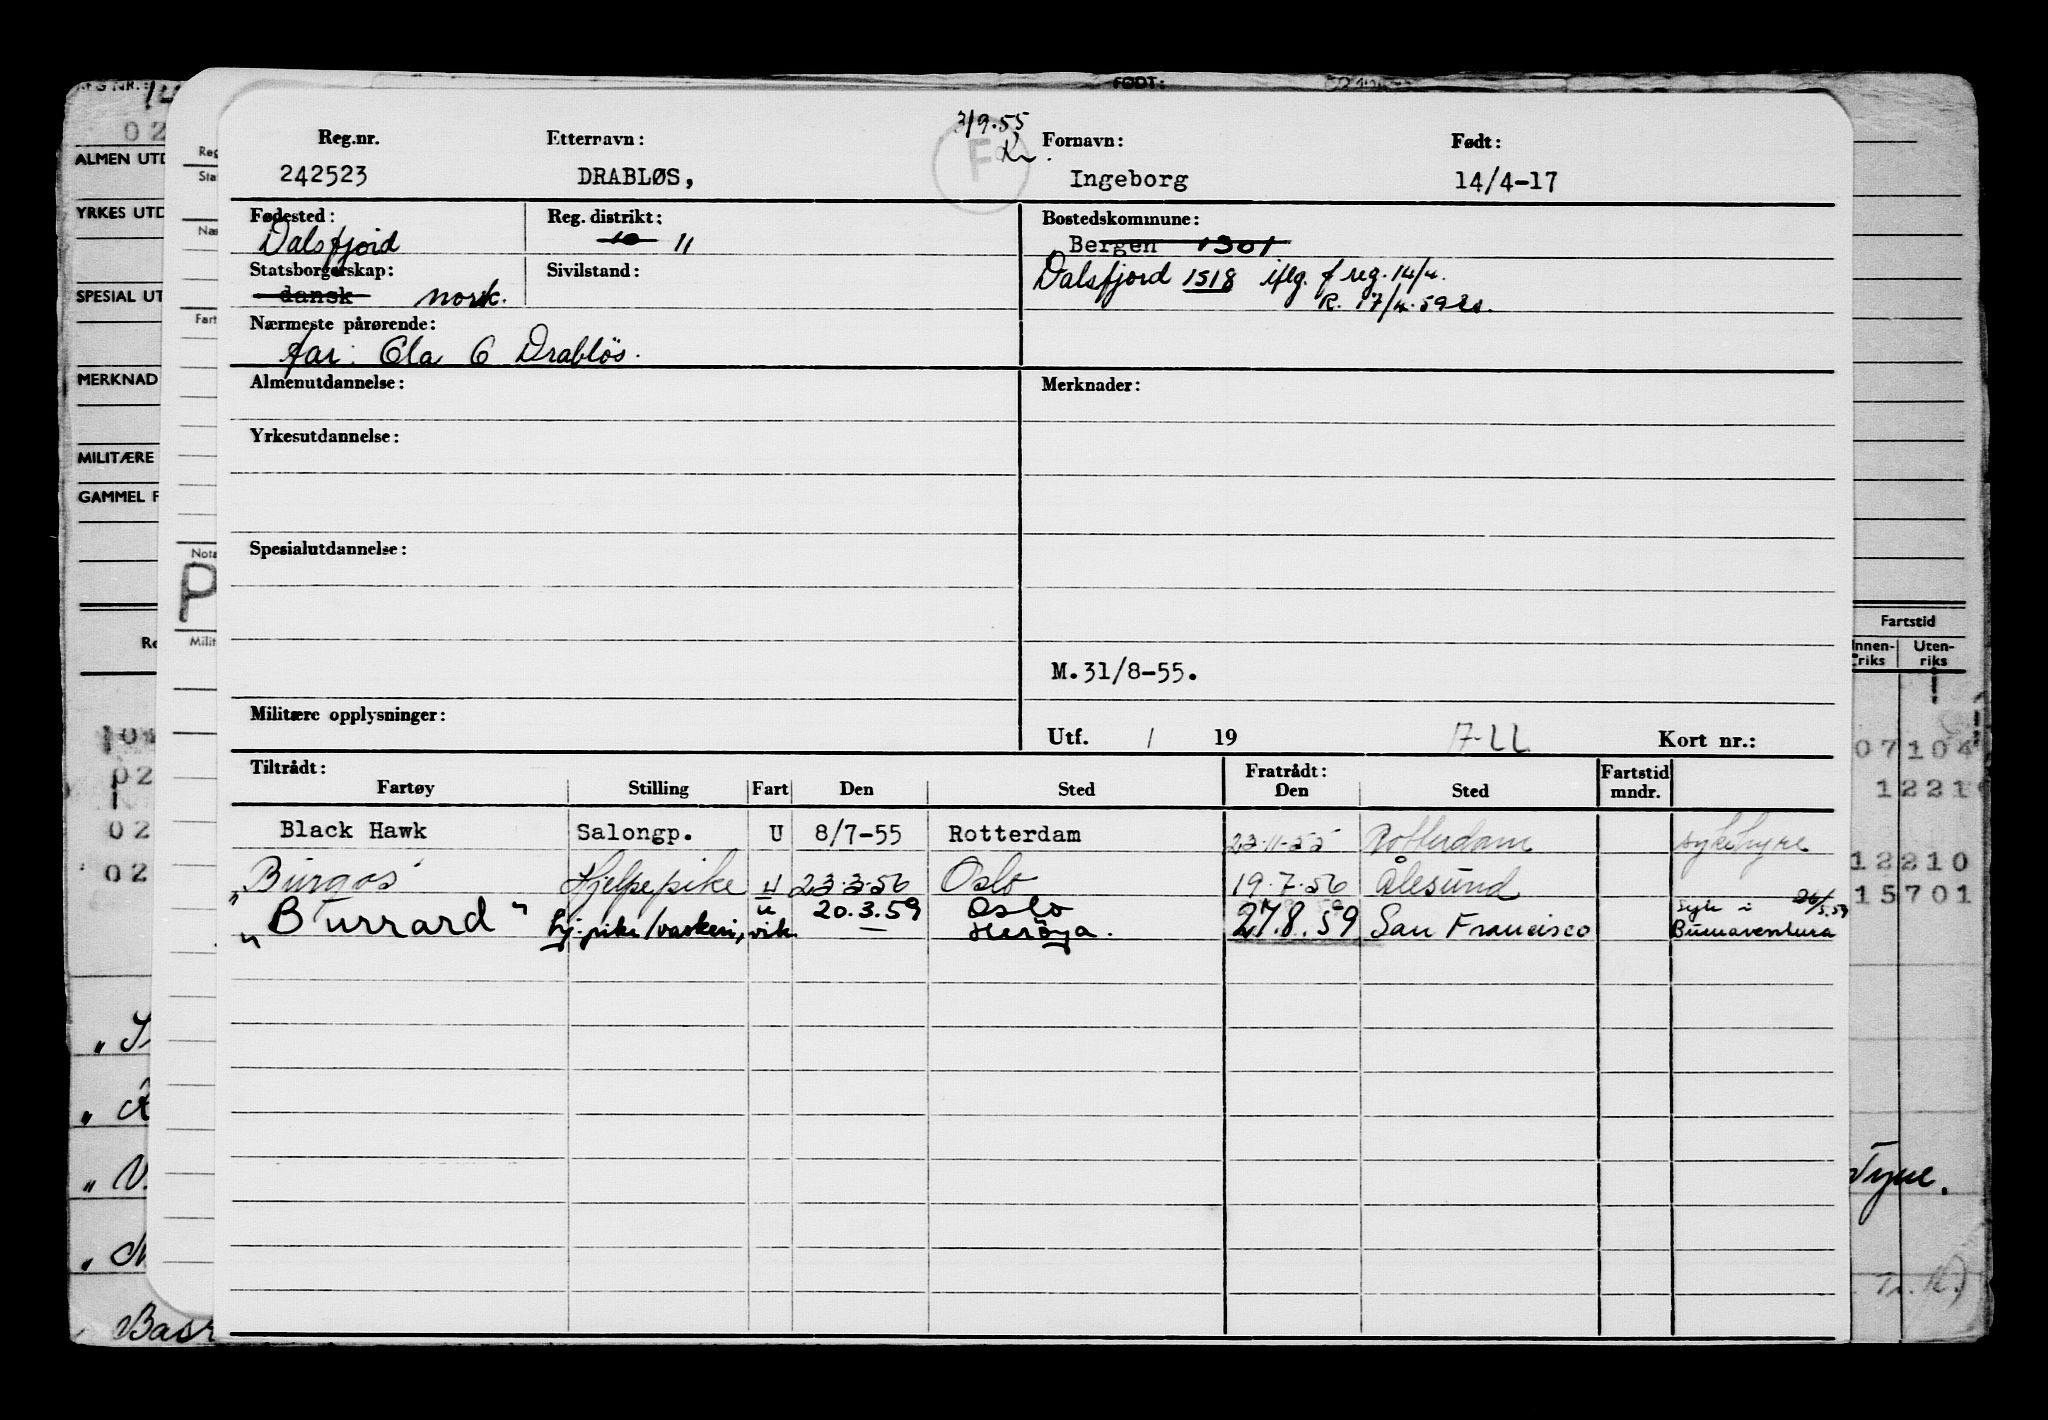 3/9.55
Reg.nr. Etternavn: F Fornavn: Født:
242523 DRABLØS, Ingeborg 14/4-17
Fødested: Reg. distrikt: Bostedskommune:
Dalsfjord 10 11 Bergen 1301
Statsborgerskap: Sivilstand: Dalsfjord 1518 iflg. f reg. 14/4.
dansk norsk. R. 17/4-59
Nærmeste pårørende:
far: Ola O Drabløs.
Almenutdannelse: Merknader:
Yrkesutdannelse:
Spesialutdannelse:
M.31/8-55.
Militære opplysninger:
Utf. / 19 17-LL Kort nr.:
Tiltrådt: Fratrådt: Fartstid
Fartøy Stilling Fart Den Sted Den Sted mndr.
Black Hawk Salongp. U 8/7-55 Rotterdam 23-11-55 Rotterdam sykehyre
"Burgos" Hjelpepike U 23-3-56 Oslo 19-7-56 Ålesund
"Burrard" hj.pike/vaskeri, vik. u 20.3.59 Oslo Herøya. 27.8.59 San Francisco Syk i Buenaventura 26/5.59
AFG NR.:
FØDT:
02
ALMEN UTD
YRKES UTD
SPESIAL UT
MERKNAD
MILITÆRE
GAMMEL F
Reg
Sta
Næ
Fart
Nota
P
Milit
Re
02
02
02
Basr
Fartstid
Innen-riks Uten-riks
07104
1221
12210
15701
Tyne.